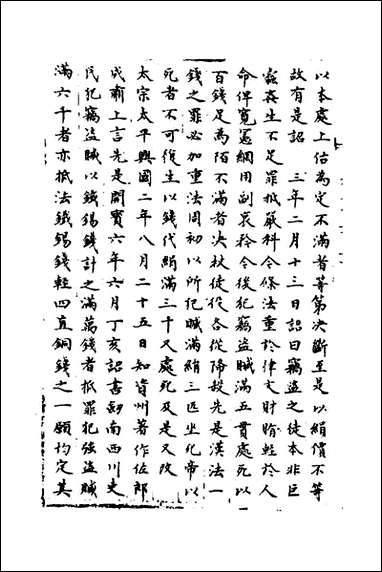 以本處上估為定不滿者等第決斷至是以絹價不等
故有是詔　三年二月十三日詔曰竊盜之徒本非巨
蠹姦生不足罪抵嚴科今條法重於律文財賄輕於人
命俾寬憲網用副哀矜今後犯竊盜贓滿五貫處死以
百錢足為陌不滿者決杖徒役各從降殺先是漢法一
錢之罪必加重法周初以所犯贓滿絹三匹坐死帝以
死者不可復生以錢代絹滿三千又處死及是又改
太宗太平興國二年八月二十五日知資州著作佐郎
成朝上言先是開寶六年六月丁亥詔書劍南西川吏
民犯竊盜贓以鐵錫錢計之滿萬錢者抵罪犯強盜贓
滿六千者亦抵法鐵錫錢輕四直銅錢之一願均定其